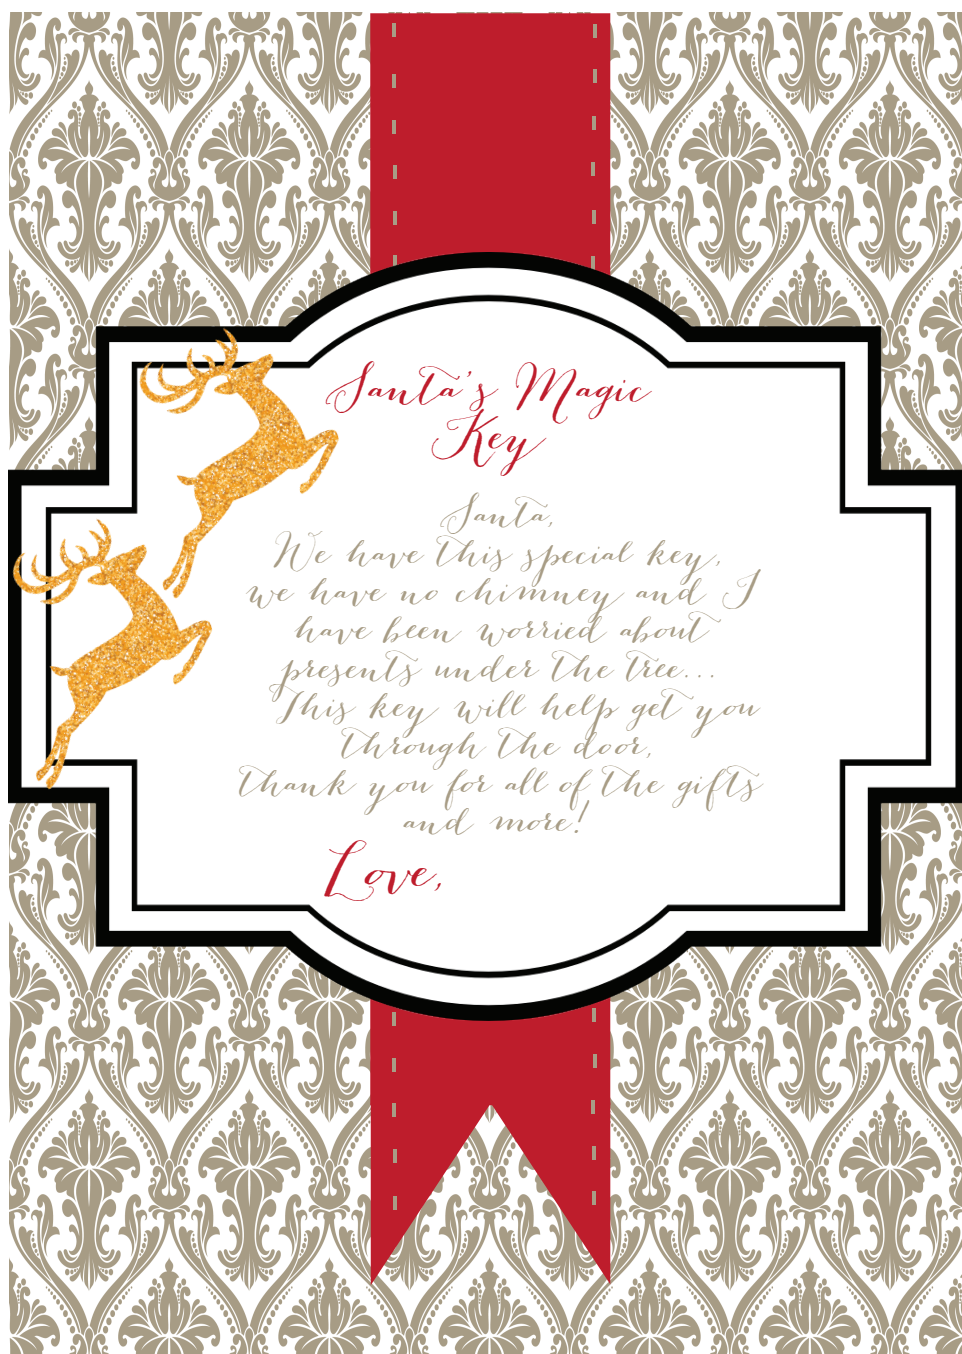 Santa's Magic
Key
Santa,
We have this special key,
we have no chimney and I
have been worried about
presents under the tree...
This key will help get you
through the door,
thank you for all of the gifts
and more!
Love,